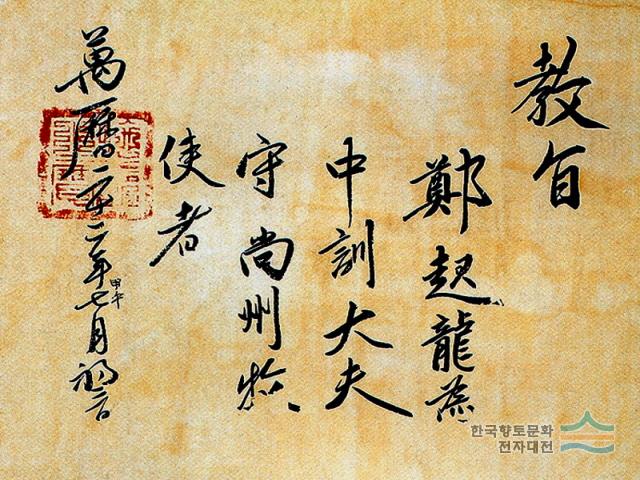 教旨
鄭起龍爲
中訓大夫
守尚州牧
使者
萬曆二十二年甲午七月初日
한국향토문화
전자대전